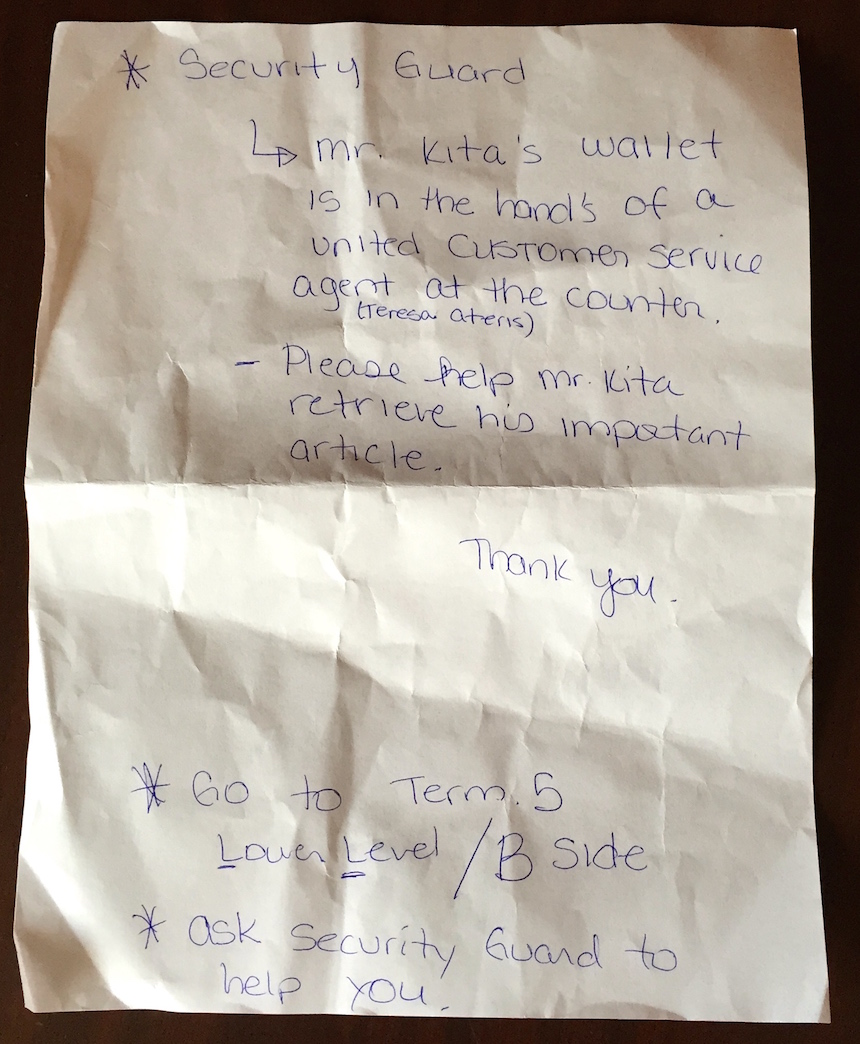 * Security Guard
↳ mr. Kita's wallet
is in the hand's of a
united customer service
agent at the counter.
(Teresa Aterис)
- Please help mr. Kita
retrieve his important
article.
Thank you.
* Go to Term. 5
Lower Level / B Side
* ask security Guard to
help you.